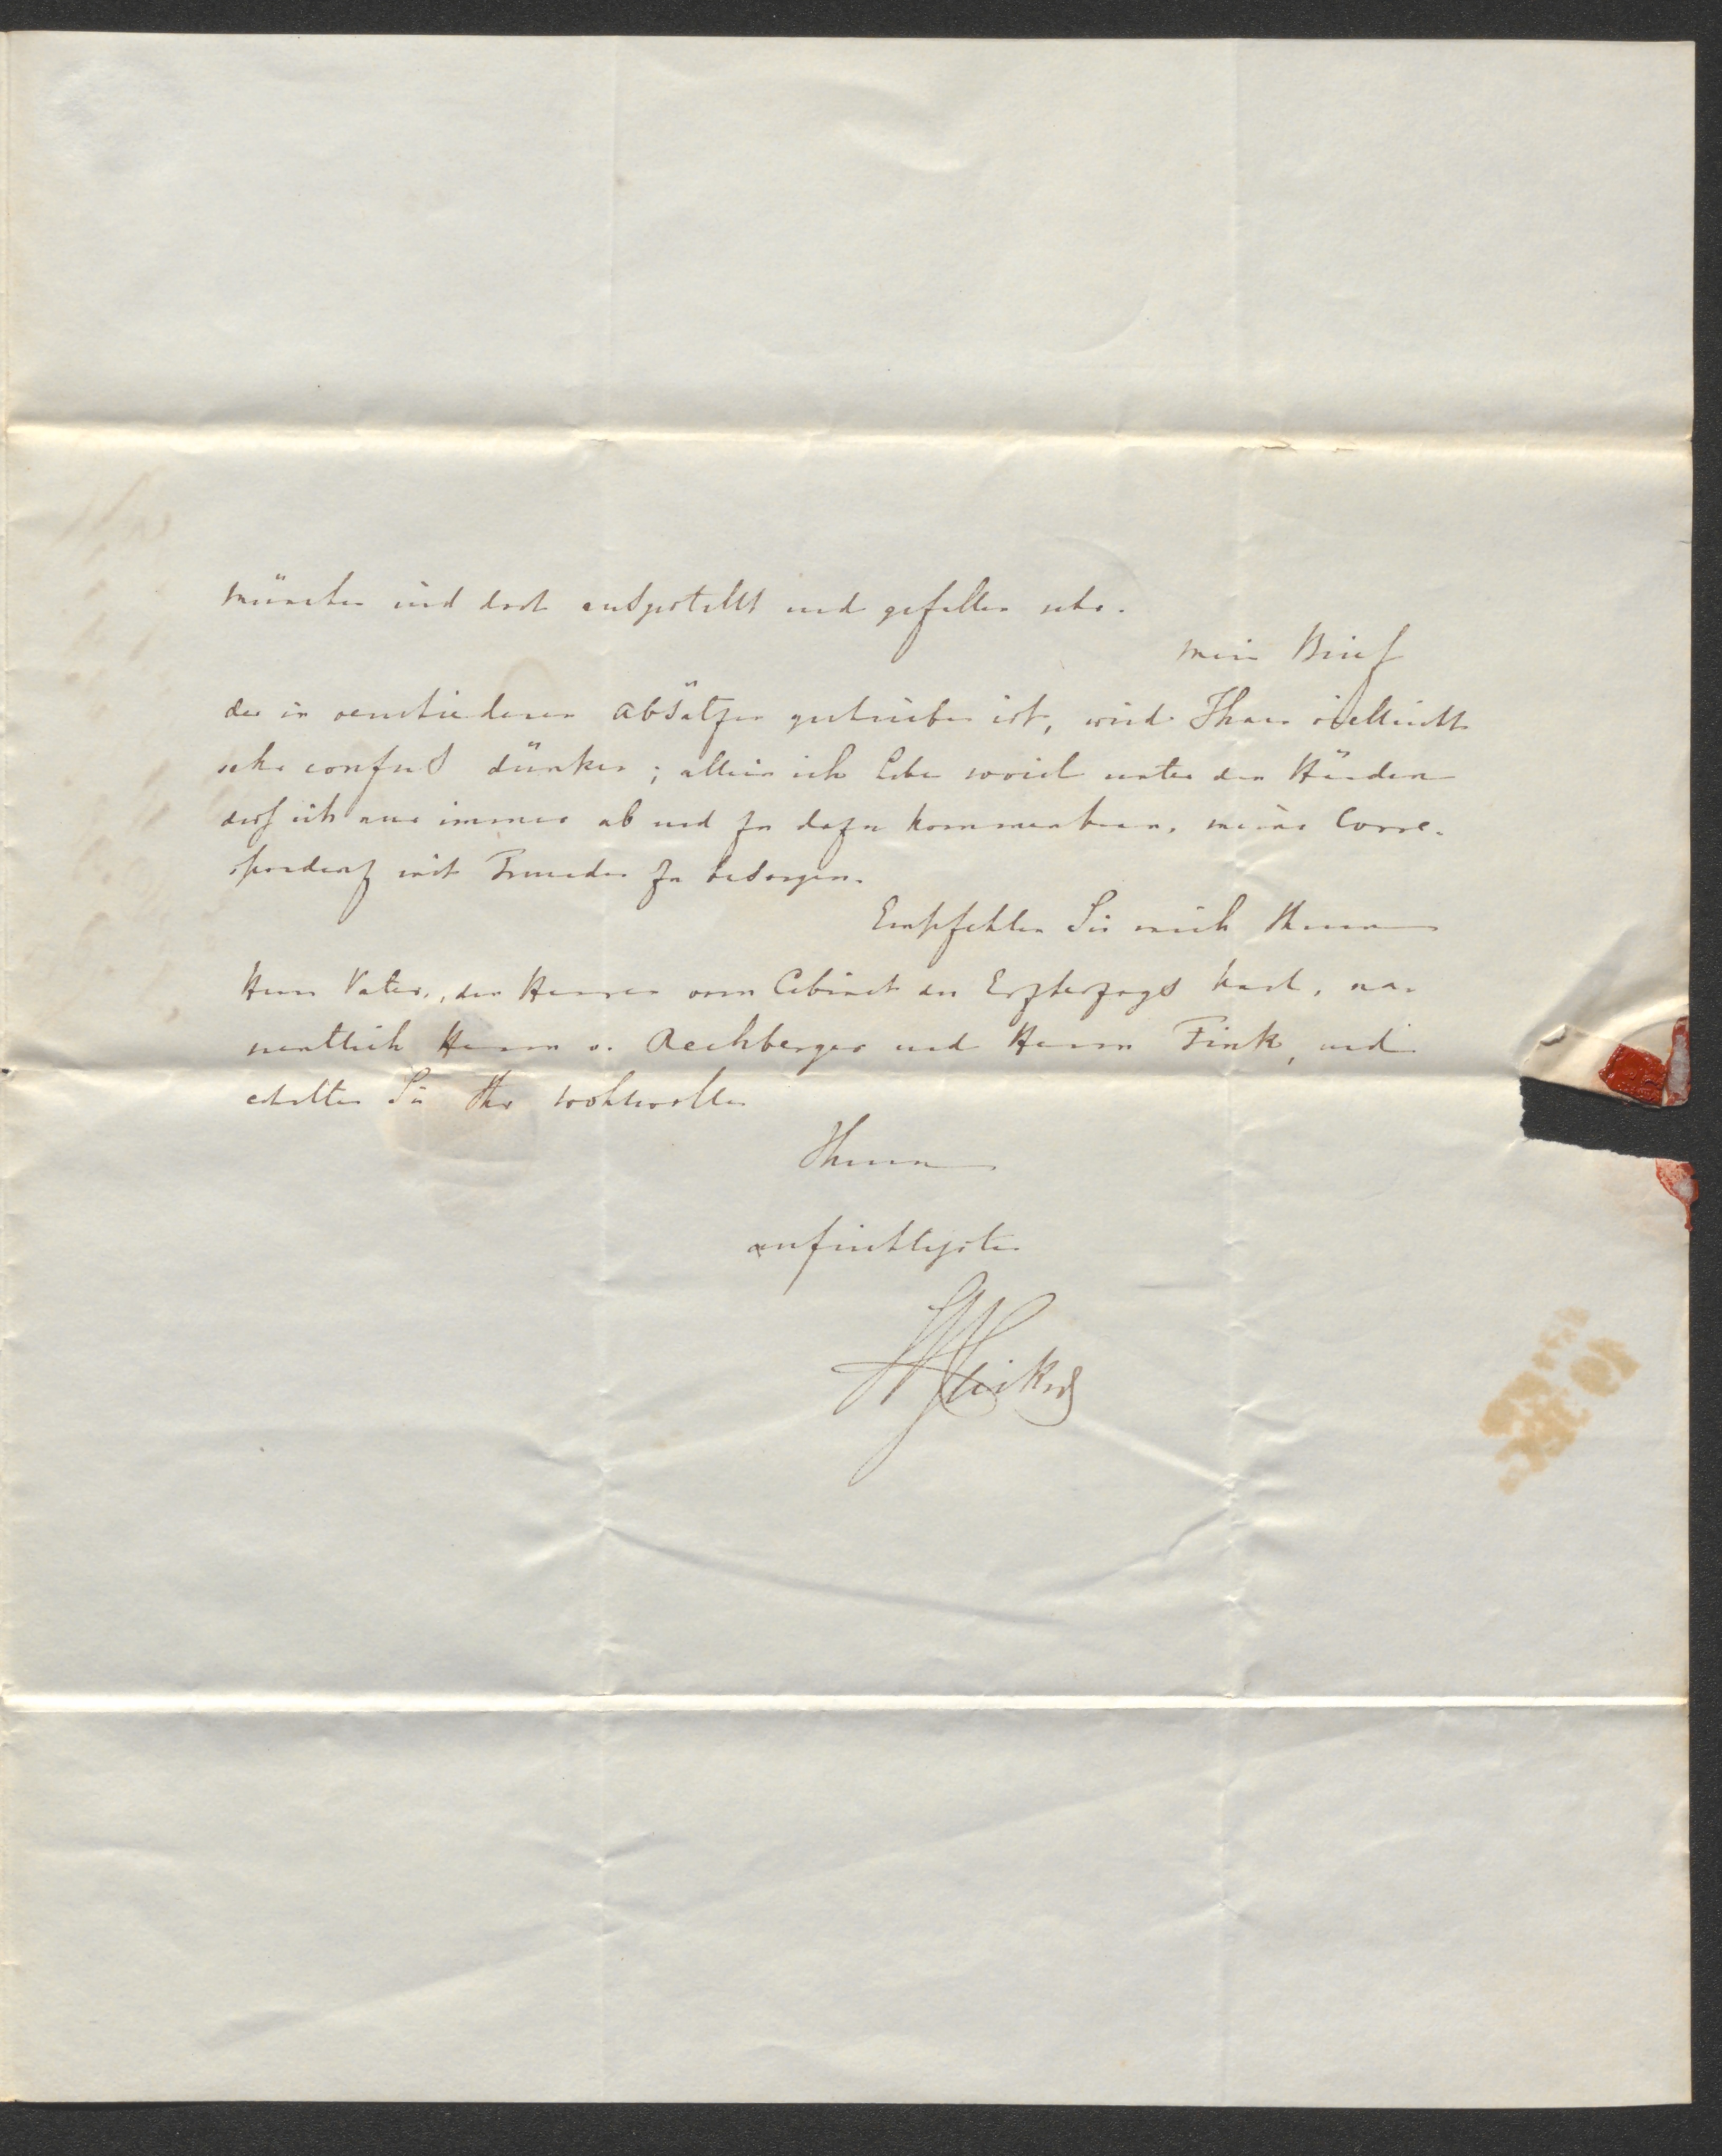 München sind dort ausgestellt und gefallen sehr.
Mein Brief
der in verschiedenen Absätzen geschrieben ist, wird Ihnen vielleicht
sehr confus dünken; allein ich habe soviel unter den Händen
daß ich nur immer ab und zu dazu kommen kann, meine Corre-
spondenz mit Freunden zu besorgen.
Empfehlen Sie mich Ihrem
Herrn Vater, den Herren vom Cabinet des Erzherzogs Karl, na-
mentlich Herrn v. Rechberger und Herrn Fink, und
erhalten Sie Ihr Wohlwollen
Ihrem
aufrichtigsten